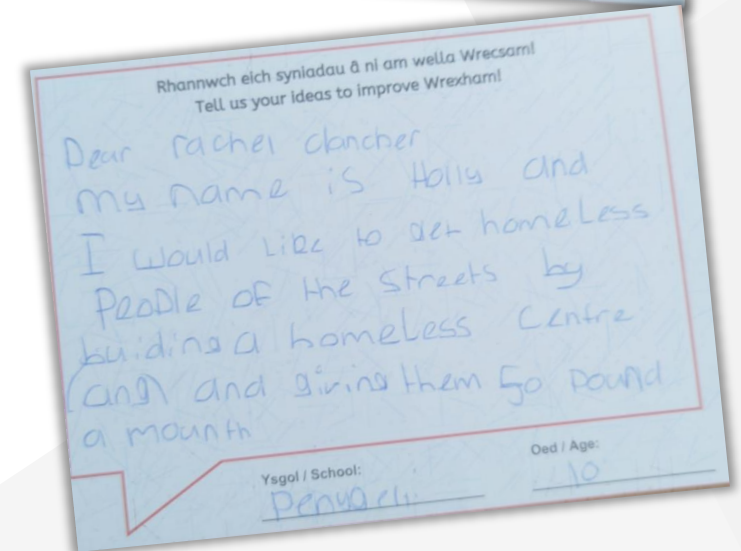 Rhannwch eich syniadau â ni am wella Wrecsam!
Tell us your ideas to improve Wrexham!
Dear rachel clancher
my name is Holly and
I would like to get homeless
People of the streets by
buiding a homeless Centre
(and) and giving them 50 pound
a mounth
Ysgol / School:
Oed / Age:
10